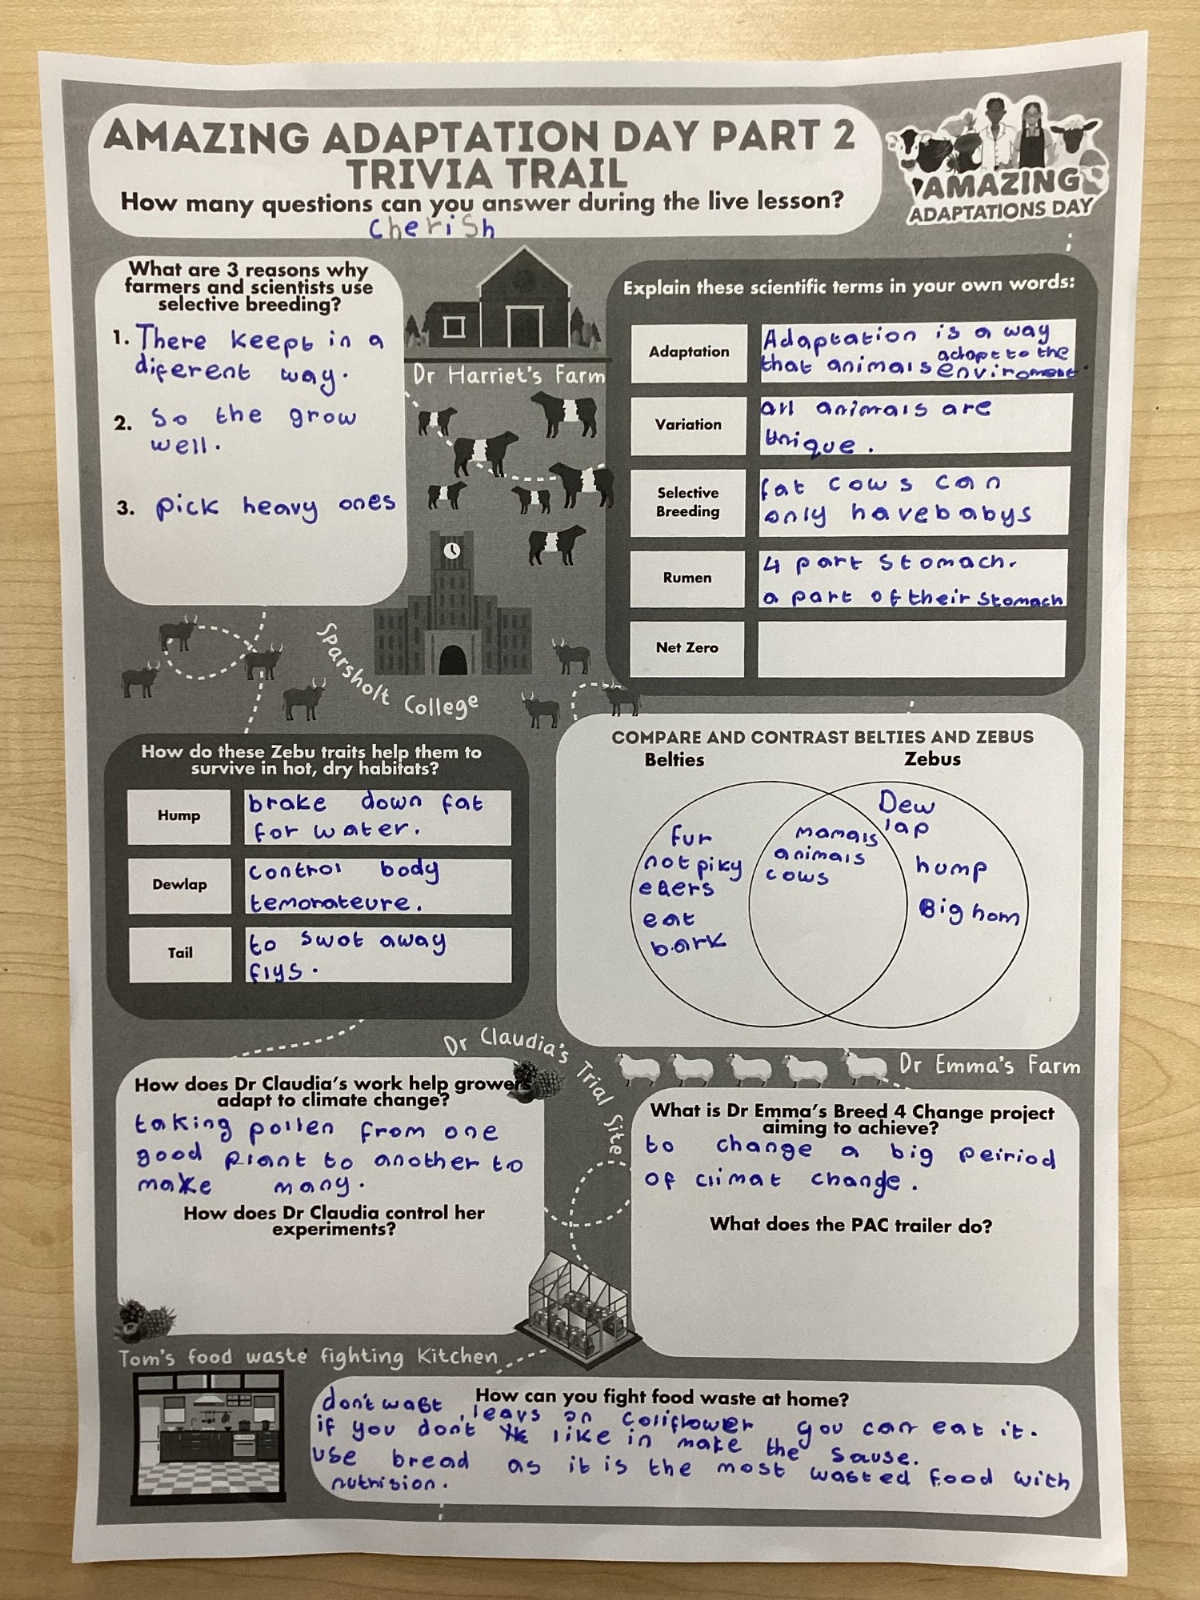 AMAZING ADAPTATION DAY PART 2
TRIVIA TRAIL
How many questions can you answer during the live lesson?
Cherish
AMAZING
ADAPTATIONS DAY
What are 3 reasons why
farmers and scientists use
selective breeding?
1. There keept in a
diferent way.
2. so the grow
well.
3. pick heavy ones
Dr Harriet's Farm
Explain these scientific terms in your own words:
Adaptation
Adaptation is a way
that animals adapt to the
enviroment.
Variation
all animals are
unique.
Selective
Breeding
fat cows can
only have babys
Rumen
4 part stomach.
a part of their stomach
Net Zero
Sparsholt College
How do these Zebu traits help them to
survive in hot, dry habitats?
Hump
brake down fat
for water.
Dewlap
control body
temorateure.
Tail
to swot away
flys.
COMPARE AND CONTRAST BELTIES AND ZEBUS
Belties
Zebus
fur
not piky
eters
eat
bark
mamals
animals
cows
Dew
lap
hump
Big horn
Dr Claudia's Trial Site
Dr Emma's Farm
How does Dr Claudia's work help growers
adapt to climate change?
taking pollen from one
good plant to another to
make many.
How does Dr Claudia control her
experiments?
What is Dr Emma's Breed 4 Change project
aiming to achieve?
to change a big peiriod
of climat change.
What does the PAC trailer do?
Tom's food waste fighting Kitchen
How can you fight food waste at home?
don't wast leavs on coliflower you can eat it.
if you don't like in make the sause.
use bread as it is the most wasted food with
nutrision.